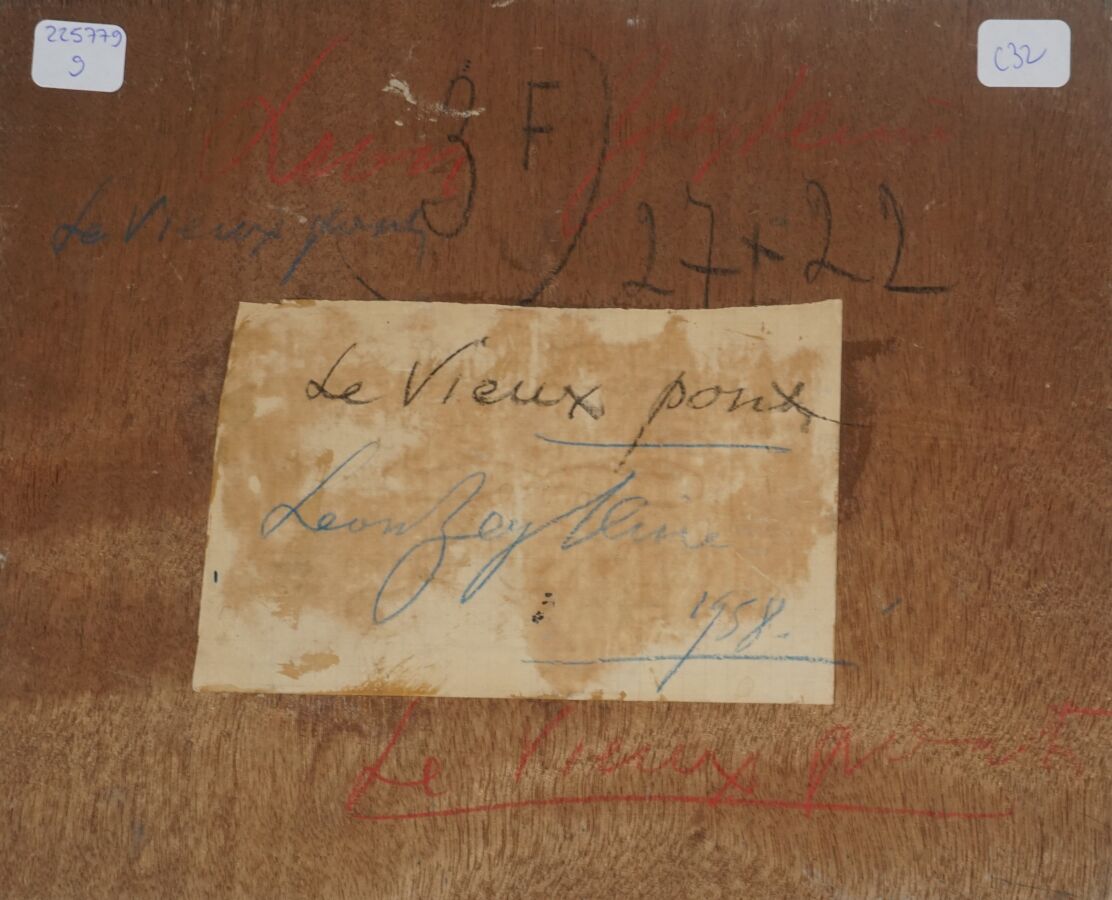 225779
9
C32
3 F
Leon Zeytline
Le Vieux pont
27 + 22
Le Vieux pont
Leon Zeytline
1958.
Le Vieux pont